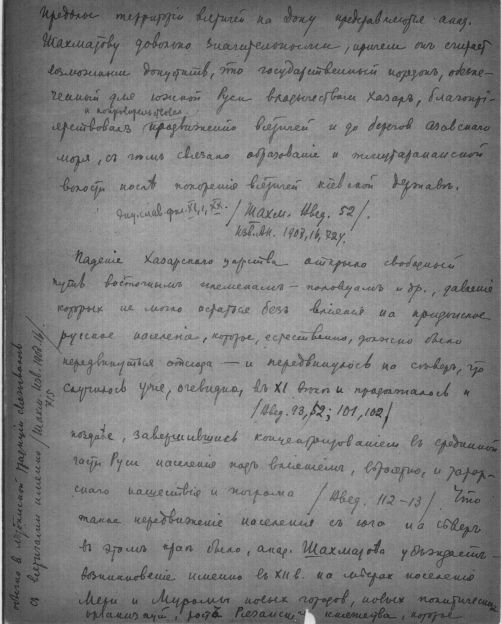 Пределы территорiи вятичей на Дону представляются акад.
Шахматову довольно значительными, причем он считает
возможным допустить, что государственный порядок, обеспе-
ченный для южной Руси владычеством Хазар, благопрi-
и покровительствовал
ятствовал продвижению вятичей и до берегов Азовскаго
моря, с чем связано образование и тмутараканской
волости после покоренiя вятичей кiевской державой.
/Шахм. Введ. 52/.
Изв. Ак. 1907, 724.
Паденiе Хазарского царства открыло свободный
путь восточным племенам — половцам и др., давленiе
которых не могло остаться без влiянiя на придонское
русское населенiе, которое, естественно, должно было
передвинуться отсюда — и передвинулось на север, что
случилось уже, очевидно, в XI веке и продолжалось и
/Введ. 93, 52; 101, 102/
позднее, завершившись концентрированiем в срединной
части Руси населенiя под влiянiем, вероятно, и татар-
ского нашествiя и погрома /Введ. 112-13/. Что
такое передвиженiе населенiя с юга на север
в этом крае было, акад. Шахматова убеждает
возникновенiе именно в XII в. на местах поселенiя
Мери и Муромы новых городов, новых политических
организацiй, рост Рязанского княжества, которое
с вятичами именно /Шахм. Изв. 1907, IV/
715